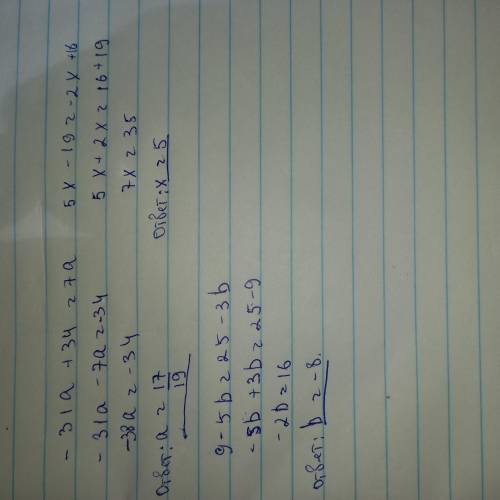 - 31a + 34 = 7a
- 31a - 7a = -34
-38a = -34
Ответ: a = 17/19
5x - 19 = -2x + 16
5x + 2x = 16 + 19
7x = 35
Ответ: x = 5
9 - 5b = 25 - 3b
-5b + 3b = 25 - 9
-2b = 16
Ответ: b = -8.